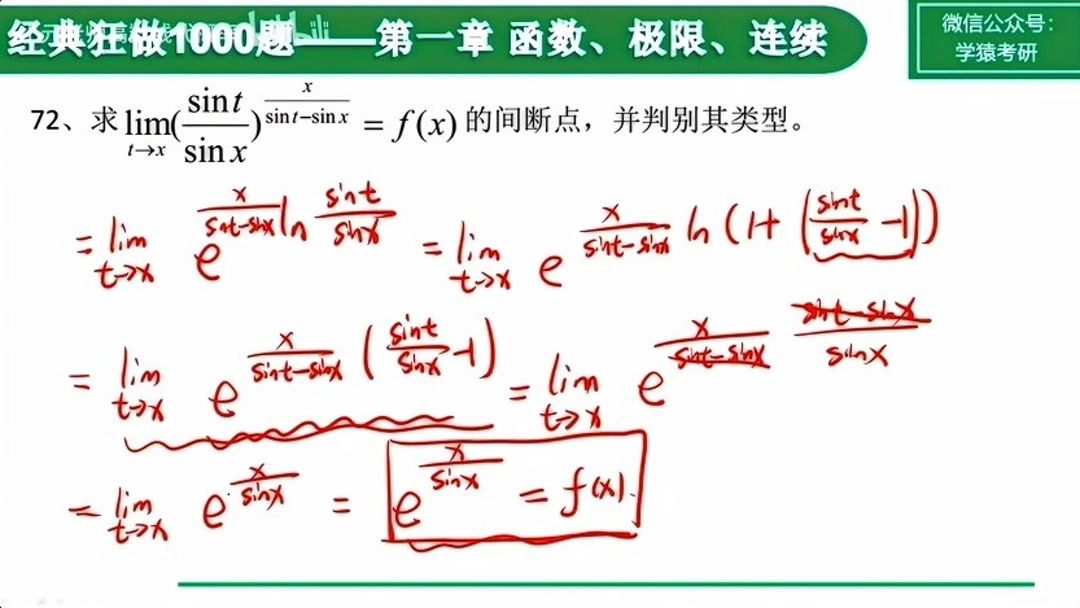 经典狂做1000题——第一章 函数、极限、连续
微信公众号：
学猿考研
72、求 lim_{t→x} (sin t / sin x)^{x / (sin t − sin x)} = f(x) 的间断点，并判别其类型。
= lim_{t→x} e^{x / (sint−sinx) ln (sint / sinx)} = lim_{t→x} e^{x / (sint−sinx) ln (1+ (sint / sinx −1))}
= lim_{t→x} e^{x / (sint−sinx) (sint / sinx −1)} = lim_{t→x} e^{x / (sint−sinx) (sint−sinx) / sinx}
= lim_{t→x} e^{x / sinx} = e^{x / sinx} = f(x).